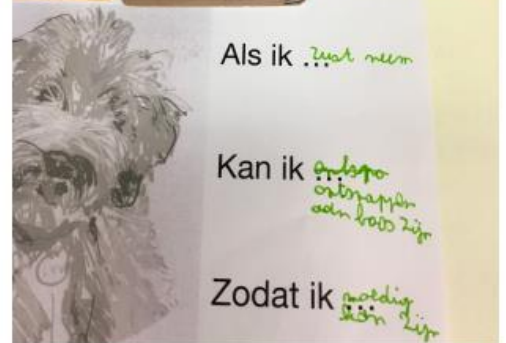 Als ik ... rust neem
Kan ik ... ontspa
ontsnappen
aan boos zijn
Zodat ik ... moedig
kan zijn